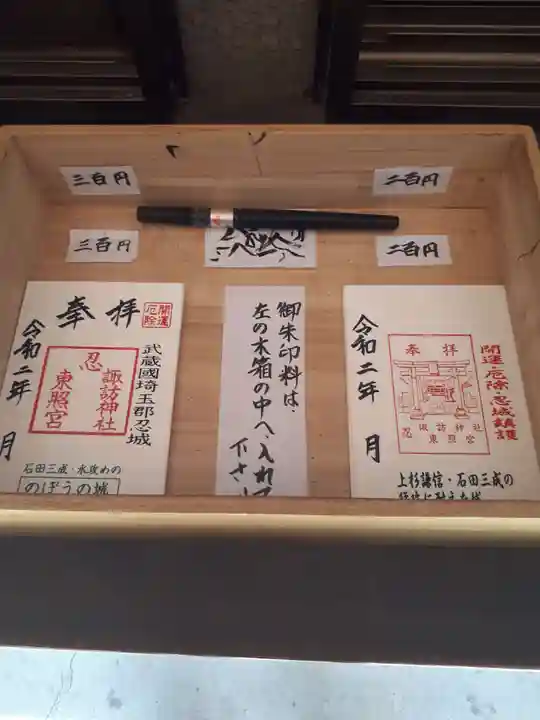 三百円
二百円
三百円
二百円
奉拝
開運
厄除
令和二年 月
忍
諏訪神社
東照宮
武蔵國埼玉郡忍城
石田三成・水攻めの
のぼうの城
御朱印料は、
左の木箱の中へ、入れて
下さい
令和二年 月
奉拝
諏訪神社
東照宮
開運・厄除・忍城鎮護
上杉謙信・石田三成の